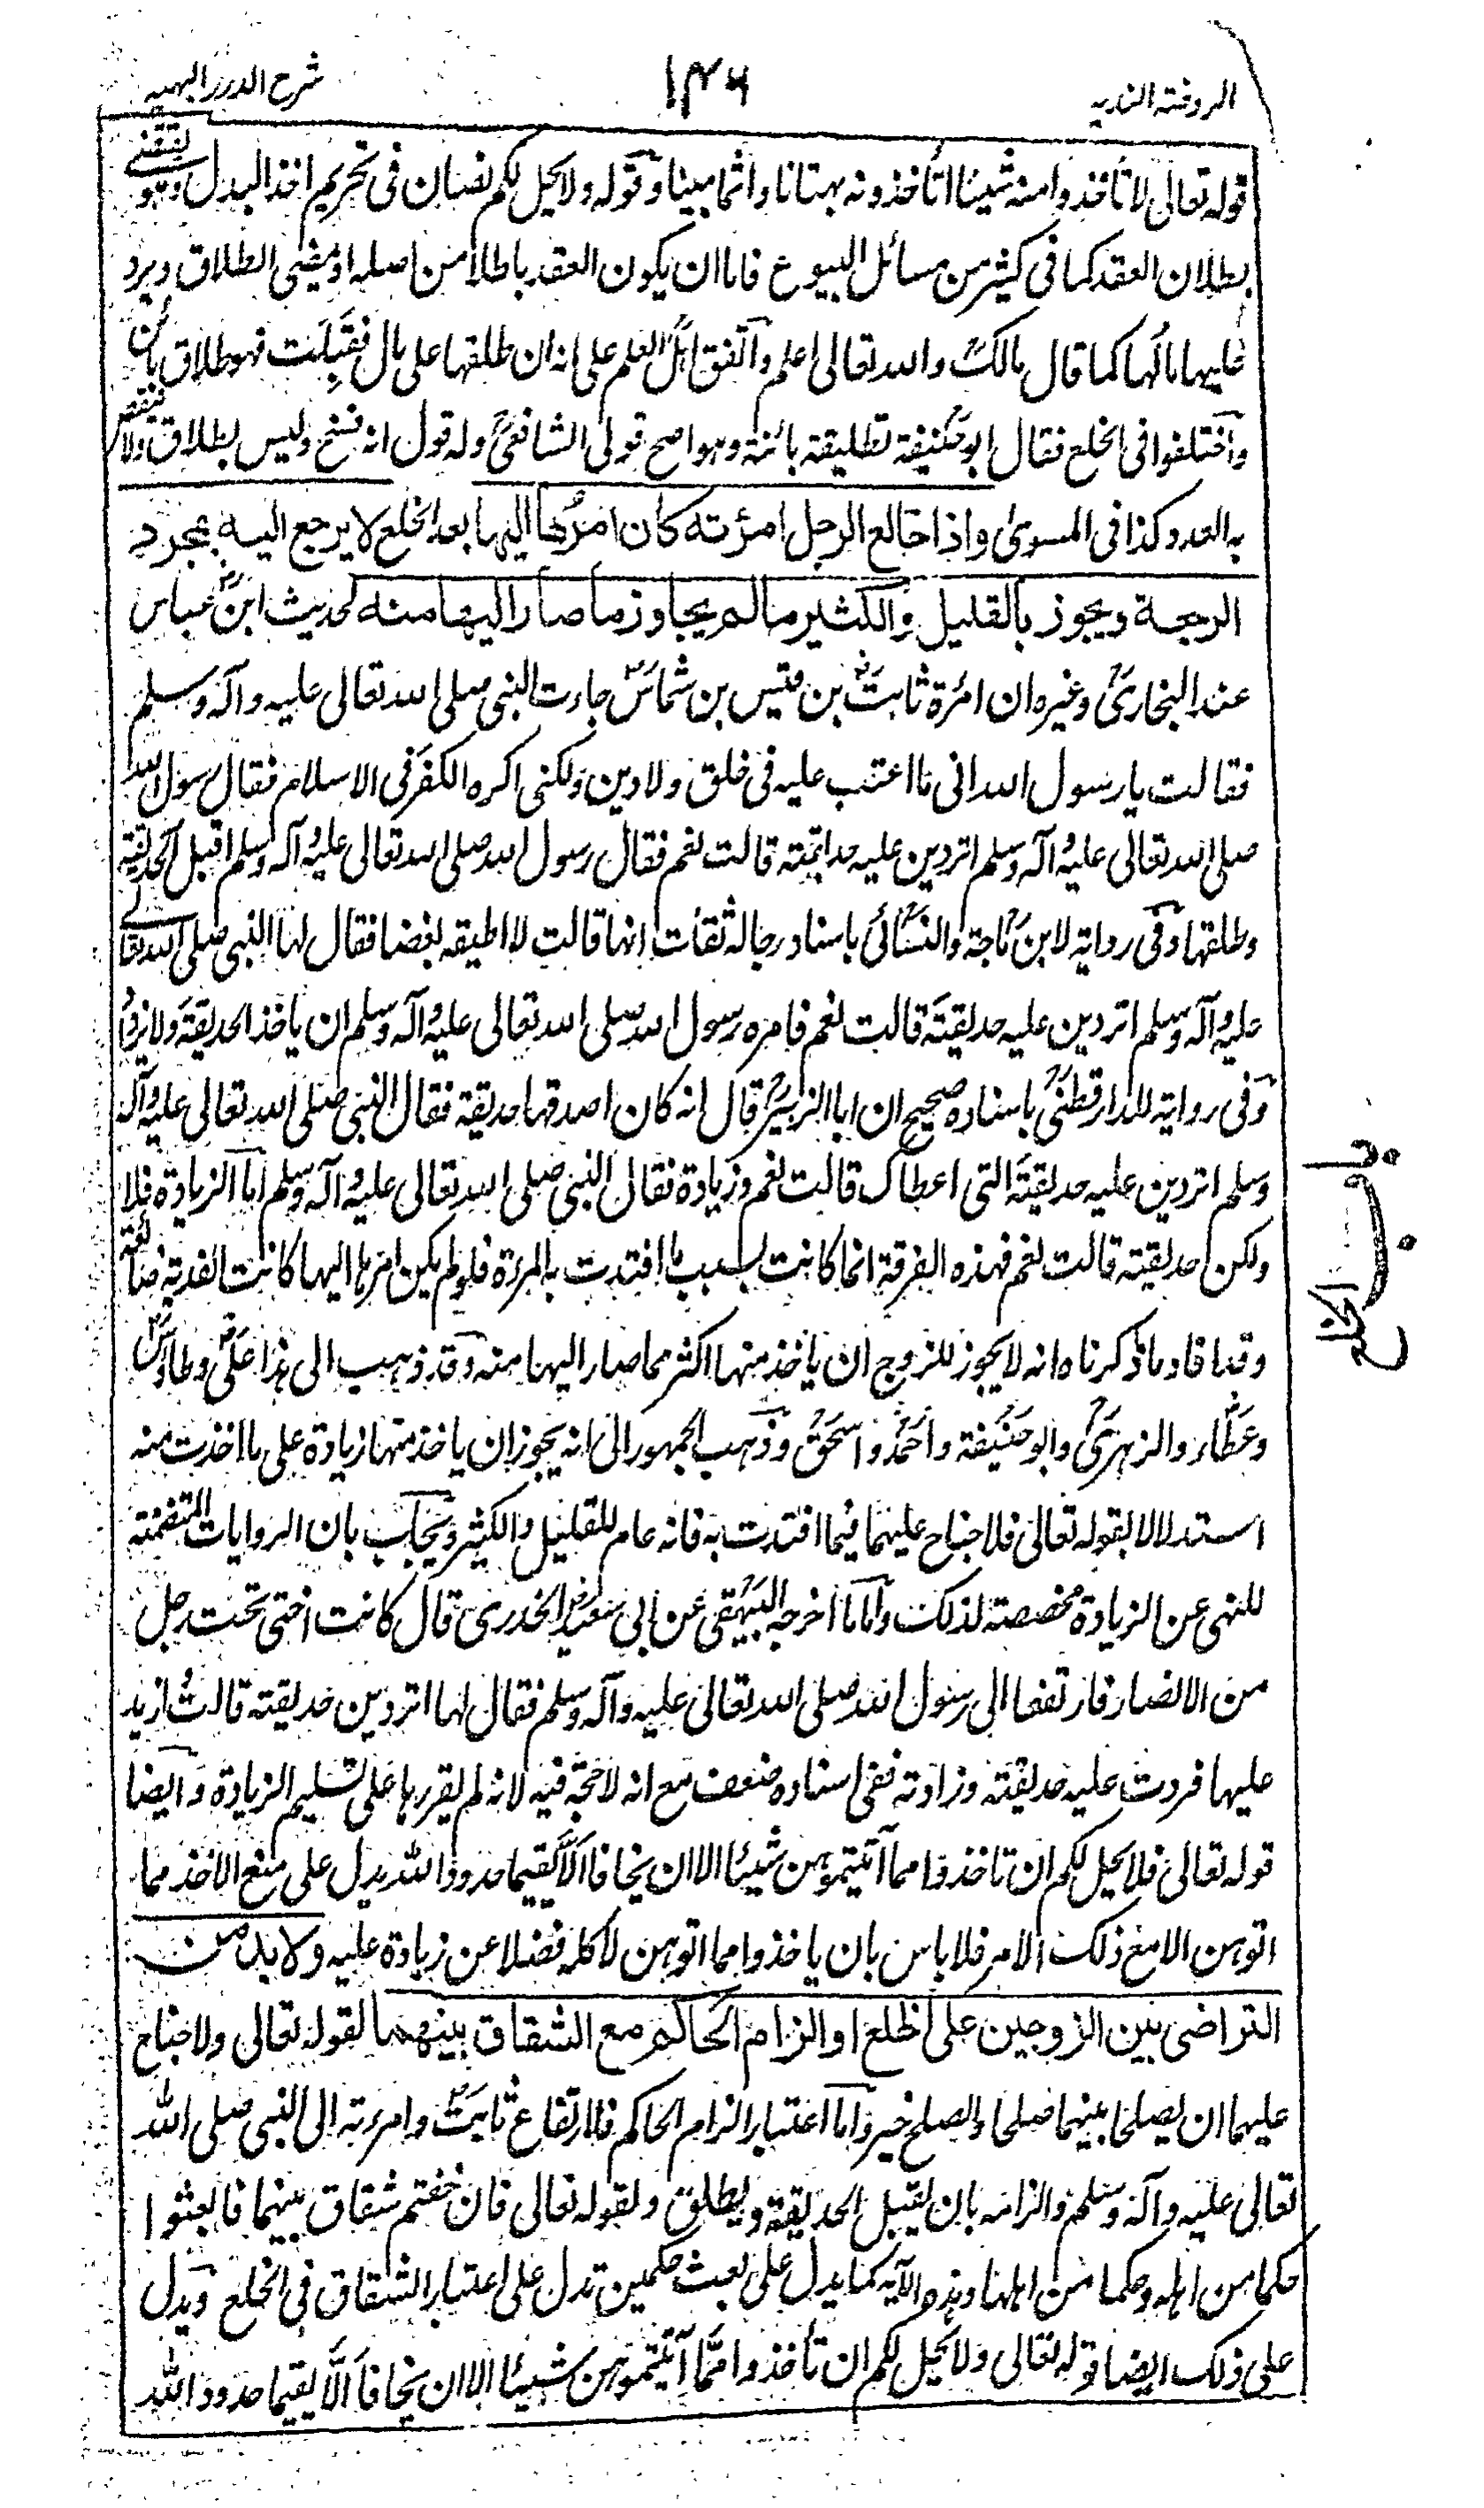 الروضة الندية ١٤٦ شرح الدرر البهية
قوله تعالى لا تأخذوا منه شيئا أتأخذونه بهتانا واثما مبينا وقوله ولا يحل لكم نصان فى تحريم اخذ البدل وهو يقتضي
بطلان العقد كما فى كثير من مسائل البيوع فاما ان يكون العقد باطلا من اصله او يمضى الطلاق ويرد
عليها مالها كما قال مالك والله تعالى اعلم واتفق اهل العلم على انه ان طلقها على مال فقبلت فهو طلاق بائن
واختلفوا فى الخلع فقال ابو حنيفة تطليقة بائنة وهو اصح قولى الشافعي وله قول انه فسخ وليس بطلاق ولا ينقص
به العدد وكذا فى المسوى واذا خالع الرجل امرأته كان امرها اليها بعد الخلع لا يرجع اليه بمجرد
الرجعة ويجوز بالقليل والكثير ما لم يجاوز ما صار اليها منه لحديث ابن عباس
عند البخارى وغيره ان امرأة ثابت بن قيس بن شماس جاءت النبى صلى الله تعالى عليه وآله وسلم
فقالت يا رسول الله انى ما اعتب عليه فى خلق ولا دين ولكنى اكره الكفر فى الاسلام فقال رسول الله
صلى الله تعالى عليه وآله وسلم اتردين عليه حديقته قالت نعم فقال رسول الله صلى الله تعالى عليه وآله وسلم اقبل الحديقة
وطلقها وفى رواية لابن ماجة والنسائى باسناد رجاله ثقات انها قالت لا اطيقه بغضا فقال لها النبى صلى الله تعالى
عليه وآله وسلم اتردين عليه حديقته قالت نعم فامره رسول الله صلى الله تعالى عليه وآله وسلم ان ياخذ الحديقة ولا يزداد
وفى رواية للدارقطنى باسناده صحيح ان ابا الزبير قال انه كان اصدقها حديقة فقال النبى صلى الله تعالى عليه وآله
وسلم اتردين عليه حديقته التى اعطاك قالت نعم وزيادة فقال النبى صلى الله تعالى عليه وآله وسلم اما الزيادة فلا
ولكن حديقته قالت نعم فهذه الفرقة انما كانت بسبب ما افتدت به المرءة فلو لم يكن امرها اليها كانت الفدية ضائعة
وقد افاد ما ذكرناه انه لا يجوز للزوج ان ياخذ منها اكثر مما صار اليها منه وقد ذهب الى هذا على وطاوس
وعطاء والزهرى وابو حنيفة واحمد واسحق وذهب الجمهور الى انه يجوز ان ياخذ منها زيادة على ما اخذت منه
استدلالا بقوله تعالى فلا جناح عليهما فيما افتدت به فانه عام للقليل والكثير ويجاب بان الروايات المتضمنة
للنهى عن الزيادة مخصصة لذلك واما ما اخرجه البيهقى عن ابى سعيد الخدرى قال كانت اختى تحت رجل
من الانصار فارتفعا الى رسول الله صلى الله تعالى عليه وآله وسلم فقال لها اتردين حديقته قالت ازيد
عليها فردت عليه حديقته وزادته ففى اسناده ضعف مع انه لا حجة فيه لانه لم يقررها على تسليم الزيادة وايضا
قوله تعالى فلا يحل لكم ان تاخذوا مما آتيتموهن شيئا الا ان يخافا الا يقيما حدود الله يدل على منع الاخذ مما
اتوهن الا مع ذلك الامر فلا باس بان ياخذوا مما اتوهن لا كله فضلا عن زيادة عليه ولا بد من
التراضى بين الزوجين على الخلع او الزام الحاكم مع الشقاق بينهما لقوله تعالى ولا جناح
عليهما ان يصلحا بينهما صلحا والصلح خير واما اعتبار الزام الحاكم فلارتفاع ثابت وامرءته الى النبى صلى الله
تعالى عليه وآله وسلم والزامه بان يقبل الحديقة ويطلق ولقوله تعالى فان خفتم شقاق بينهما فابعثوا
حكما من اهله وحكما من اهلها وهذه الآية كما يدل على بعث حكمين تدل على اعتبار الشقاق فى الخلع ويدل
على ذلك ايضا قوله تعالى ولا يحل لكم ان تأخذوا مما آتيتموهن شيئا الا ان يخافا الا يقيما حدود الله
باب الخلع